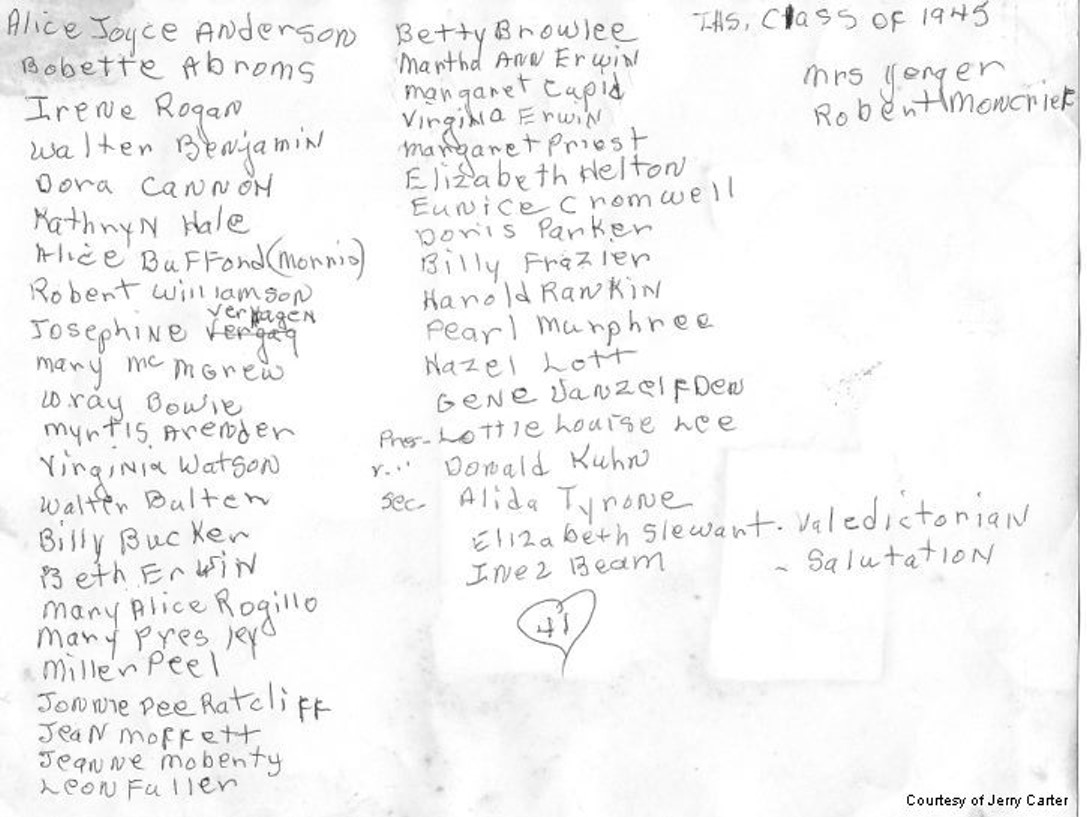 Alice Joyce Anderson
Bobette Abroms
Irene Rogan
Walter Benjamin
Dora Cannon
Kathryn Hale
Alice Bufford (Morris)
Robert Williamson
Josephine Verhagen
Mary McMorew
Wray Bowie
Myrtis Arender
Virginia Watson
Walter Balter
Billy Bucker
Beth Erwin
Mary Alice Rogillo
Mary Presley
Miller Peel
Jonnie Dee Ratcliff
Jean Moffett
Jeanne Moberty
Leon Fuller
Betty Browlee
Martha Ann Erwin
Margaret Cupid
Virginia Erwin
Margaret Priest
Elizabeth Helton
Eunice Cromwell
Doris Parker
Billy Frazier
Harold Rankin
Pearl Murphree
Hazel Lott
Gene
Pres- Lottie Louise Lee
Donald Kuhn
Sec- Alida Tyrone
Elizabeth Stewart - Valedictorian
Inez Beam - Salutation
41
IHS, Class of 1945
Mrs Yerger
Robert Moncrief
Courtesy of Jerry Carter